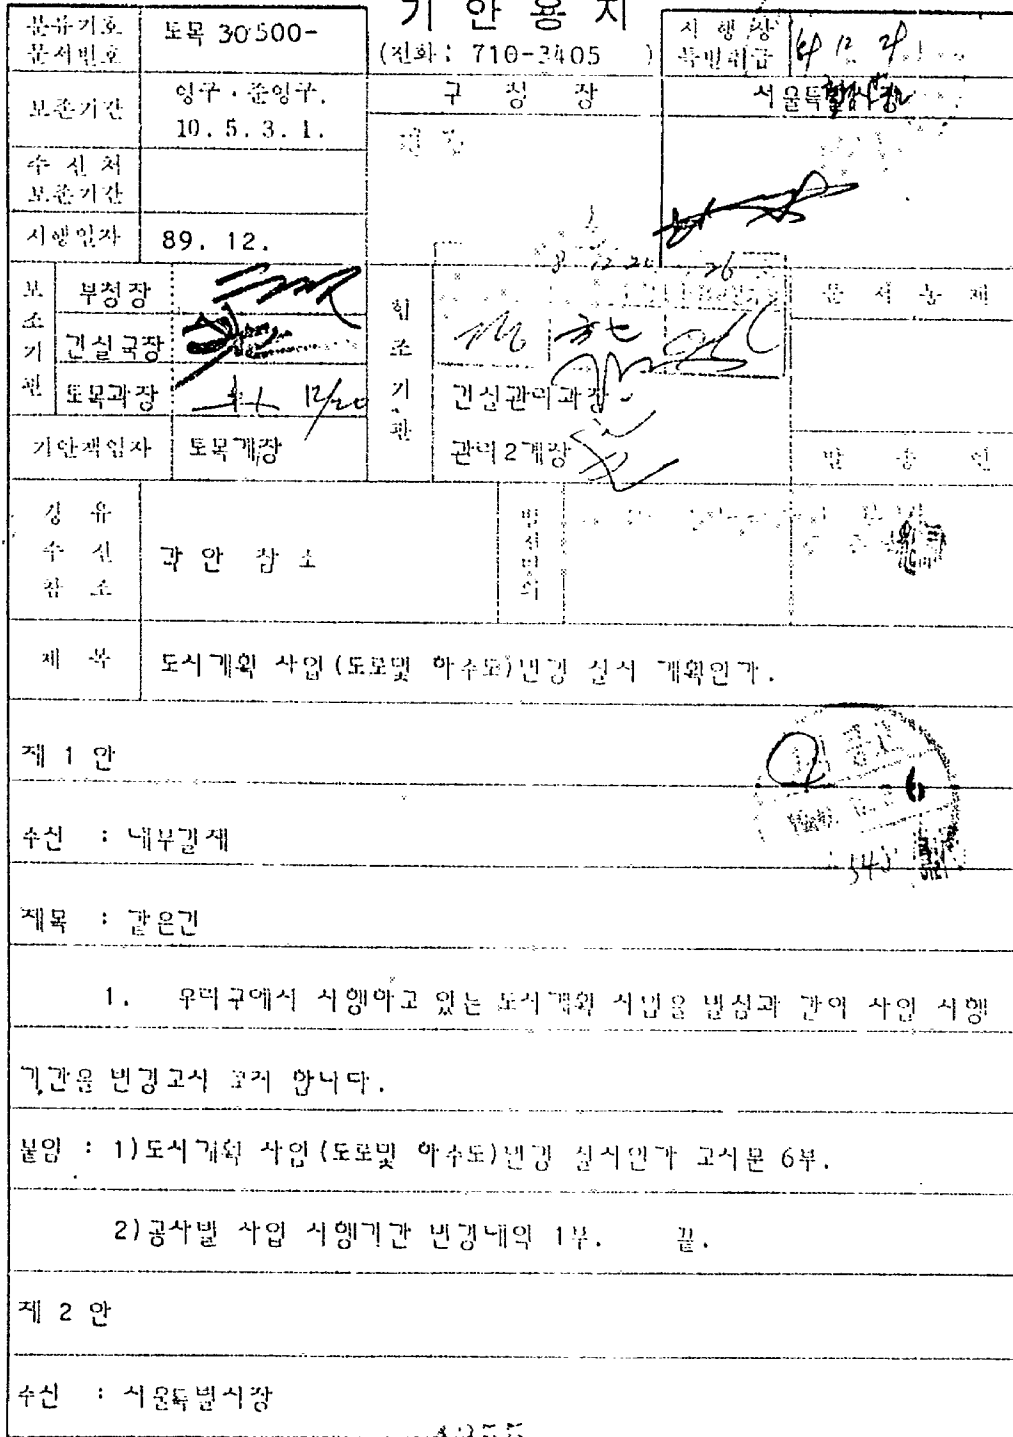 기 안 용 지
분류기호
문서번호
토목 30500-
(전화 : 710-3405 )
시 행 상
특별취급
보존기간
영구 · 준영구.
10. 5. 3. 1.
구 청 장
서울특별시장
수 신 처
보존기간
시행일자
89. 12.
보조기관
부청장
건설국장
토목과장
12/20
협조기관
건설관리과장
관리2계장
문 서 통 제
기안책임자
토목계장
발 송 인
경 유
수 신
참 조
각 안 참 조
발신명의
제 목
도시계획 사업(도로및 하수도)변경 실시 계획인가.
제 1 안
수신 : 내부결재
제목 : 같은건
1. 우리구에서 시행하고 있는 도시계획 사업을 별첨과 같이 사업 시행
기간을 변경고시 코저 합니다.
붙임 : 1)도시계획 사업(도로및 하수도)변경 실시인가 고시문 6부.
2)공사별 사업 시행기간 변경내역 1부. 끝.
제 2 안
수신 : 서울특별시장